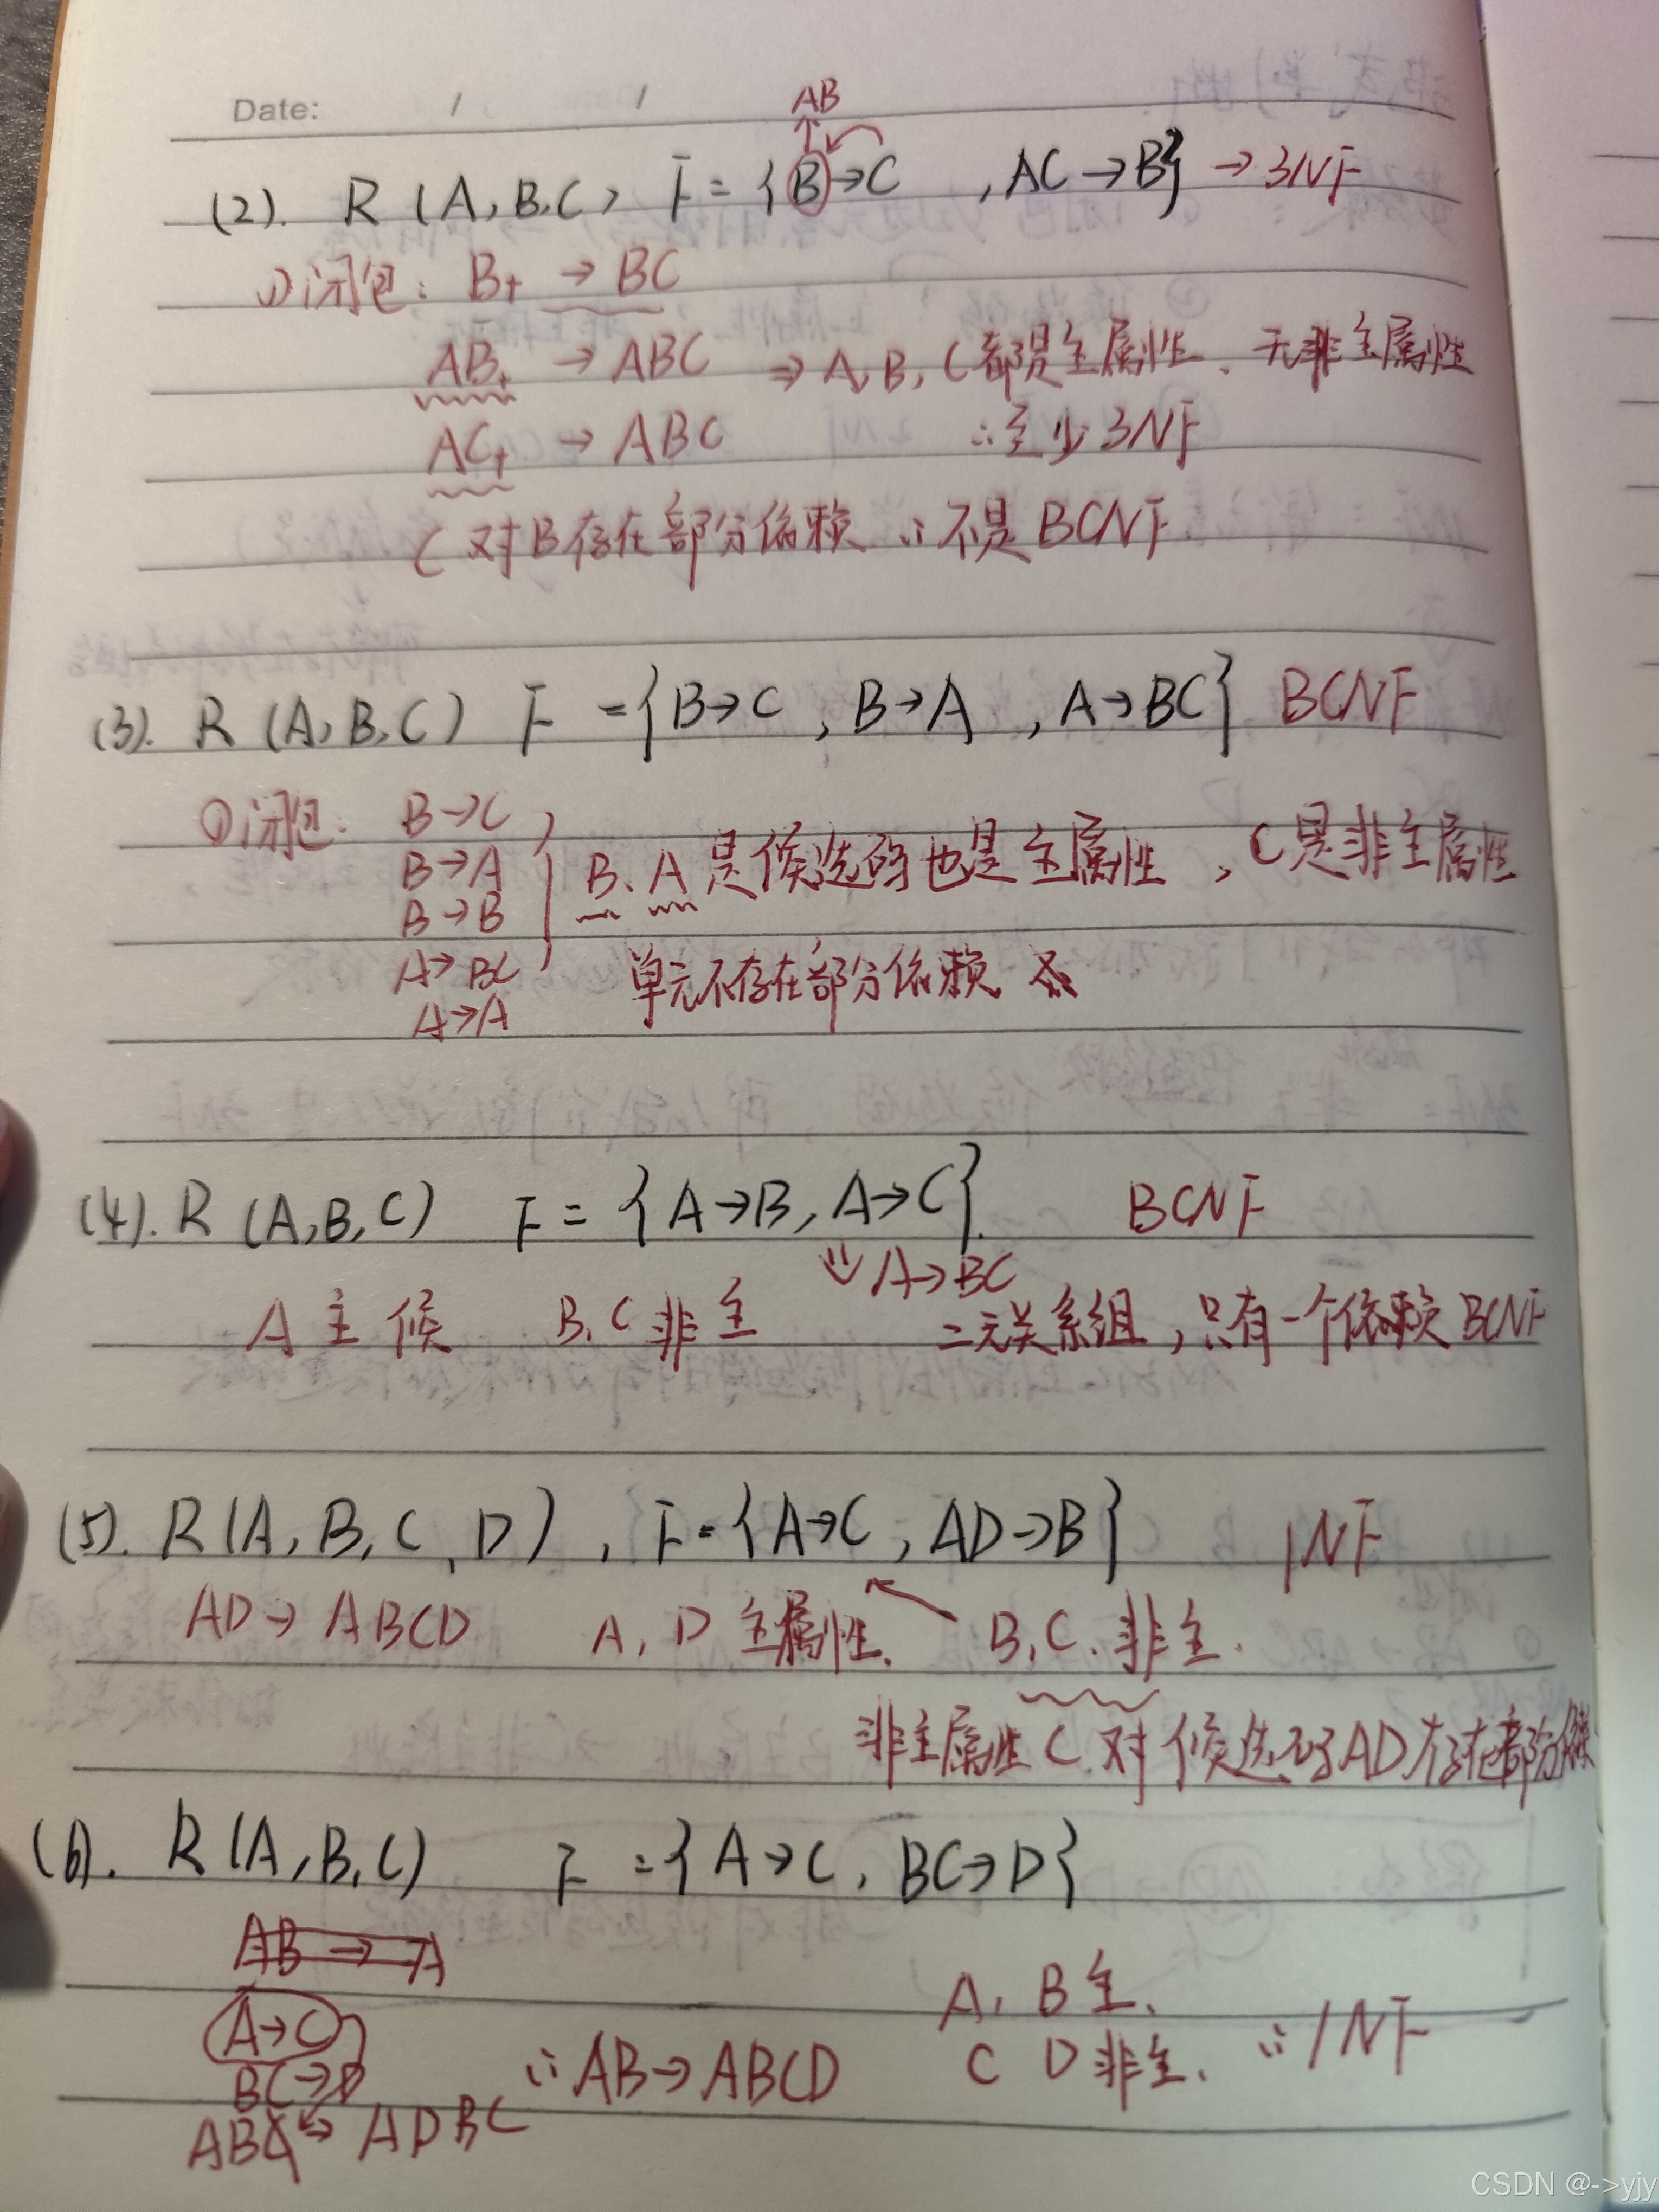 Date: / /
AB
(2). R (A,B,C) F = {B→C , AC→B} → 3NF
① 闭包: B+ → BC
AB+ → ABC ⇒ A,B,C都是主属性、无非主属性
AC+ → ABC ∴至少3NF
C对B存在部分依赖 ∴不是BCNF.
(3). R (A,B,C) F = {B→C , B→A , A→BC} BCNF
①闭包: B→C
B→A B、A是候选码也是主属性 ,C是非主属性
B→B
A→BC 单元不存在部分依赖
A→A
(4). R (A,B,C) F = {A→B, A→C}. BCNF
⇓ A→BC
A 主 候 B,C 非主 二元关系组,只有一个依赖BCNF
(5). R(A,B,C,D) , F={A→C , AD→B} 1NF
AD→ABCD A,D主属性. B,C.非主.
非主属性C对候选码AD存在部分依赖
(6). R(A,B,C) F ={A→C, BC→D}
AB→A
A→C A,B主.
BC→D ∴AB→ABCD C D非主. ∴1NF
ABC→ADBC
CSDN @->yjy